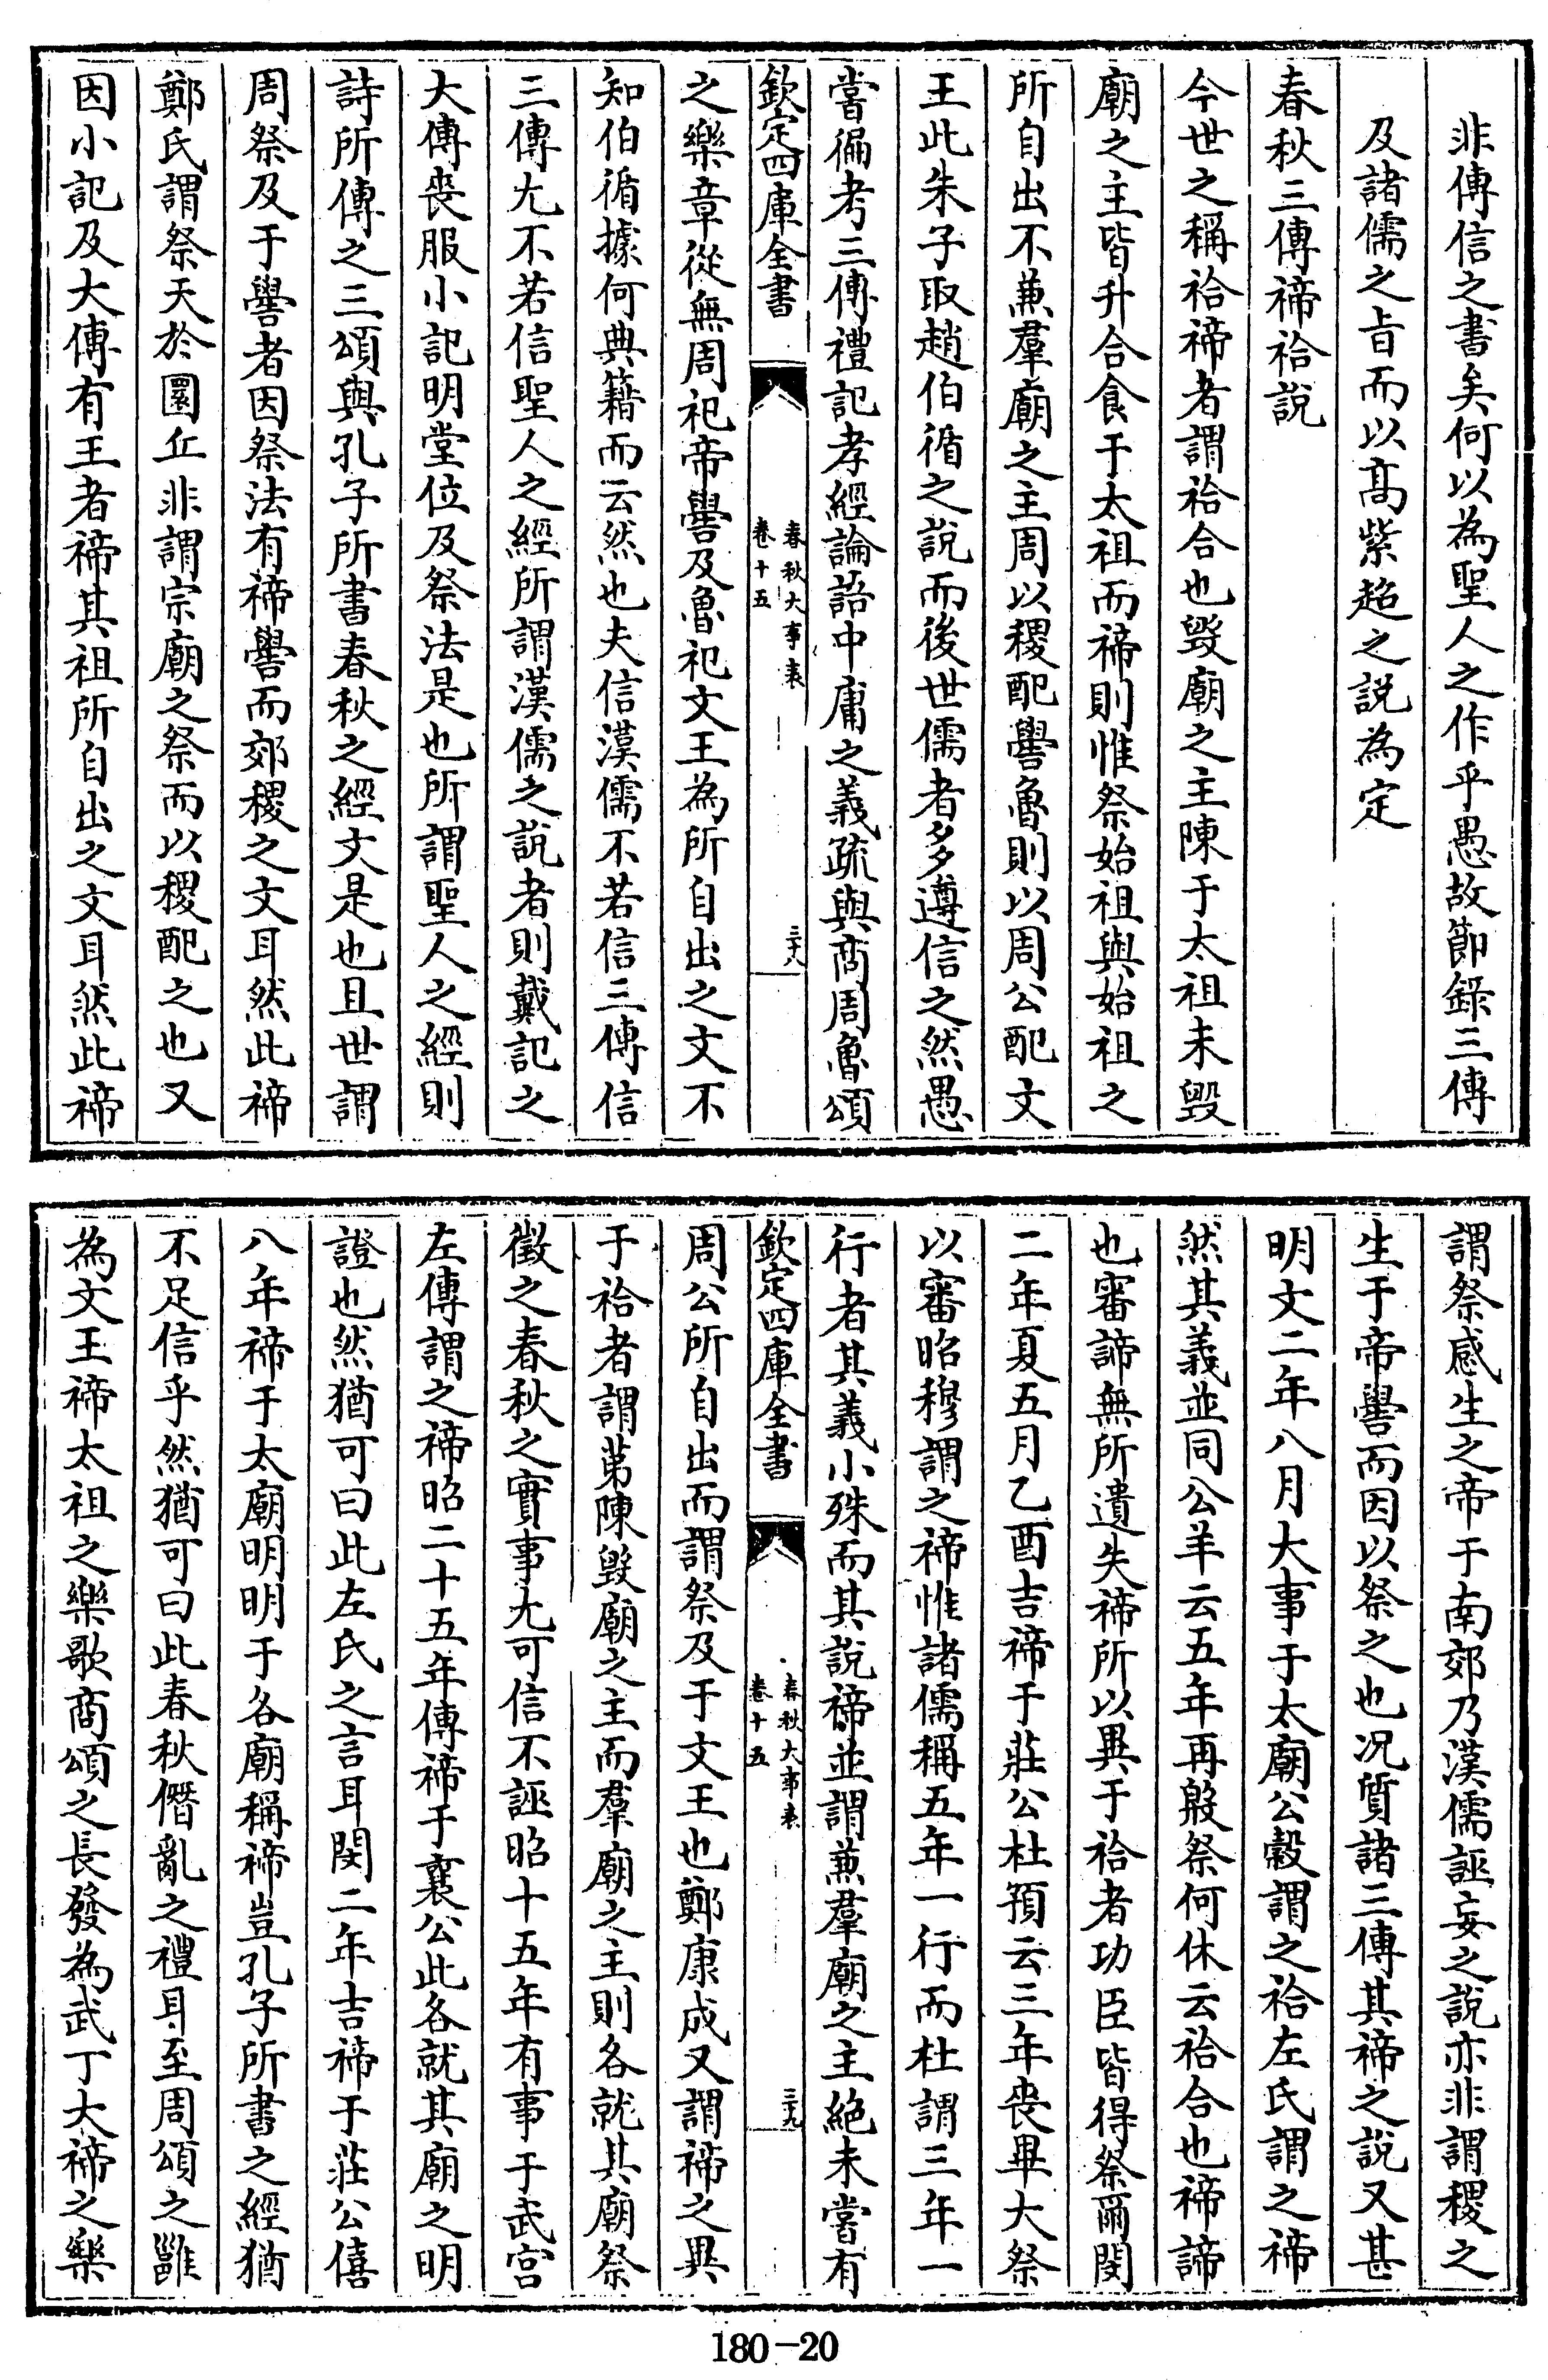 非傳信之書矣何以為聖人之作乎愚故節錄三傳
及諸儒之旨而以高紫超之説為定
春秋三傳禘祫説
今世之稱祫禘者謂祫合也毀廟之主陳于太祖未毀
廟之主皆升合食于太祖而禘則惟祭始祖與始祖之
所自出不兼羣廟之主周以稷配嚳魯則以周公配文
王此朱子取趙伯循之説而後世儒者多遵信之然愚
嘗徧考三傳禮記孝經論語中庸之義疏與商周魯頌
欽定四庫全書
春秋大事表
卷十五
三十八
之樂章從無周祀帝嚳及魯祀文王為所自出之文不
知伯循據何典籍而云然也夫信漢儒不若信三傳信
三傳尤不若信聖人之經所謂漢儒之説者則戴記之
大傳喪服小記明堂位及祭法是也所謂聖人之經則
詩所傳之三頌與孔子所書春秋之經文是也且世謂
周祭及于嚳者因祭法有禘嚳而郊稷之文耳然此禘
鄭氏謂祭天於圜丘非謂宗廟之祭而以稷配之也又
因小記及大傳有王者禘其祖所自出之文耳然此禘
謂祭感生之帝于南郊乃漢儒誣妄之説亦非謂稷之
生于帝嚳而因以祭之也况質諸三傳其禘之説又甚
明文二年八月大事于太廟公穀謂之祫左氏謂之禘
然其義並同公羊云五年再殷祭何休云祫合也禘諦
也審諦無所遺失禘所以異于祫者功臣皆得祭爾閔
二年夏五月乙酉吉禘于莊公杜預云三年喪畢大祭
以審昭穆謂之禘惟諸儒稱五年一行而杜謂三年一
行者其義小殊而其説禘並謂兼羣廟之主絶未嘗有
欽定四庫全書
春秋大事表
卷十五
三十九
周公所自出而謂祭及于文王也鄭康成又謂禘之異
于祫者謂苐陳毀廟之主而羣廟之主則各就其廟祭
徵之春秋之實事尤可信不誣昭十五年有事于武宫
左傳謂之禘昭二十五年傳禘于襄公此各就其廟之明
證也然猶可曰此左氏之言耳閔二年吉禘于莊公僖
八年禘于太廟明明于各廟稱禘豈孔子所書之經猶
不足信乎然猶可曰此春秋僭亂之禮耳至周頌之雝
為文王禘太祖之樂歌商頌之長發為武丁大禘之樂
180-20